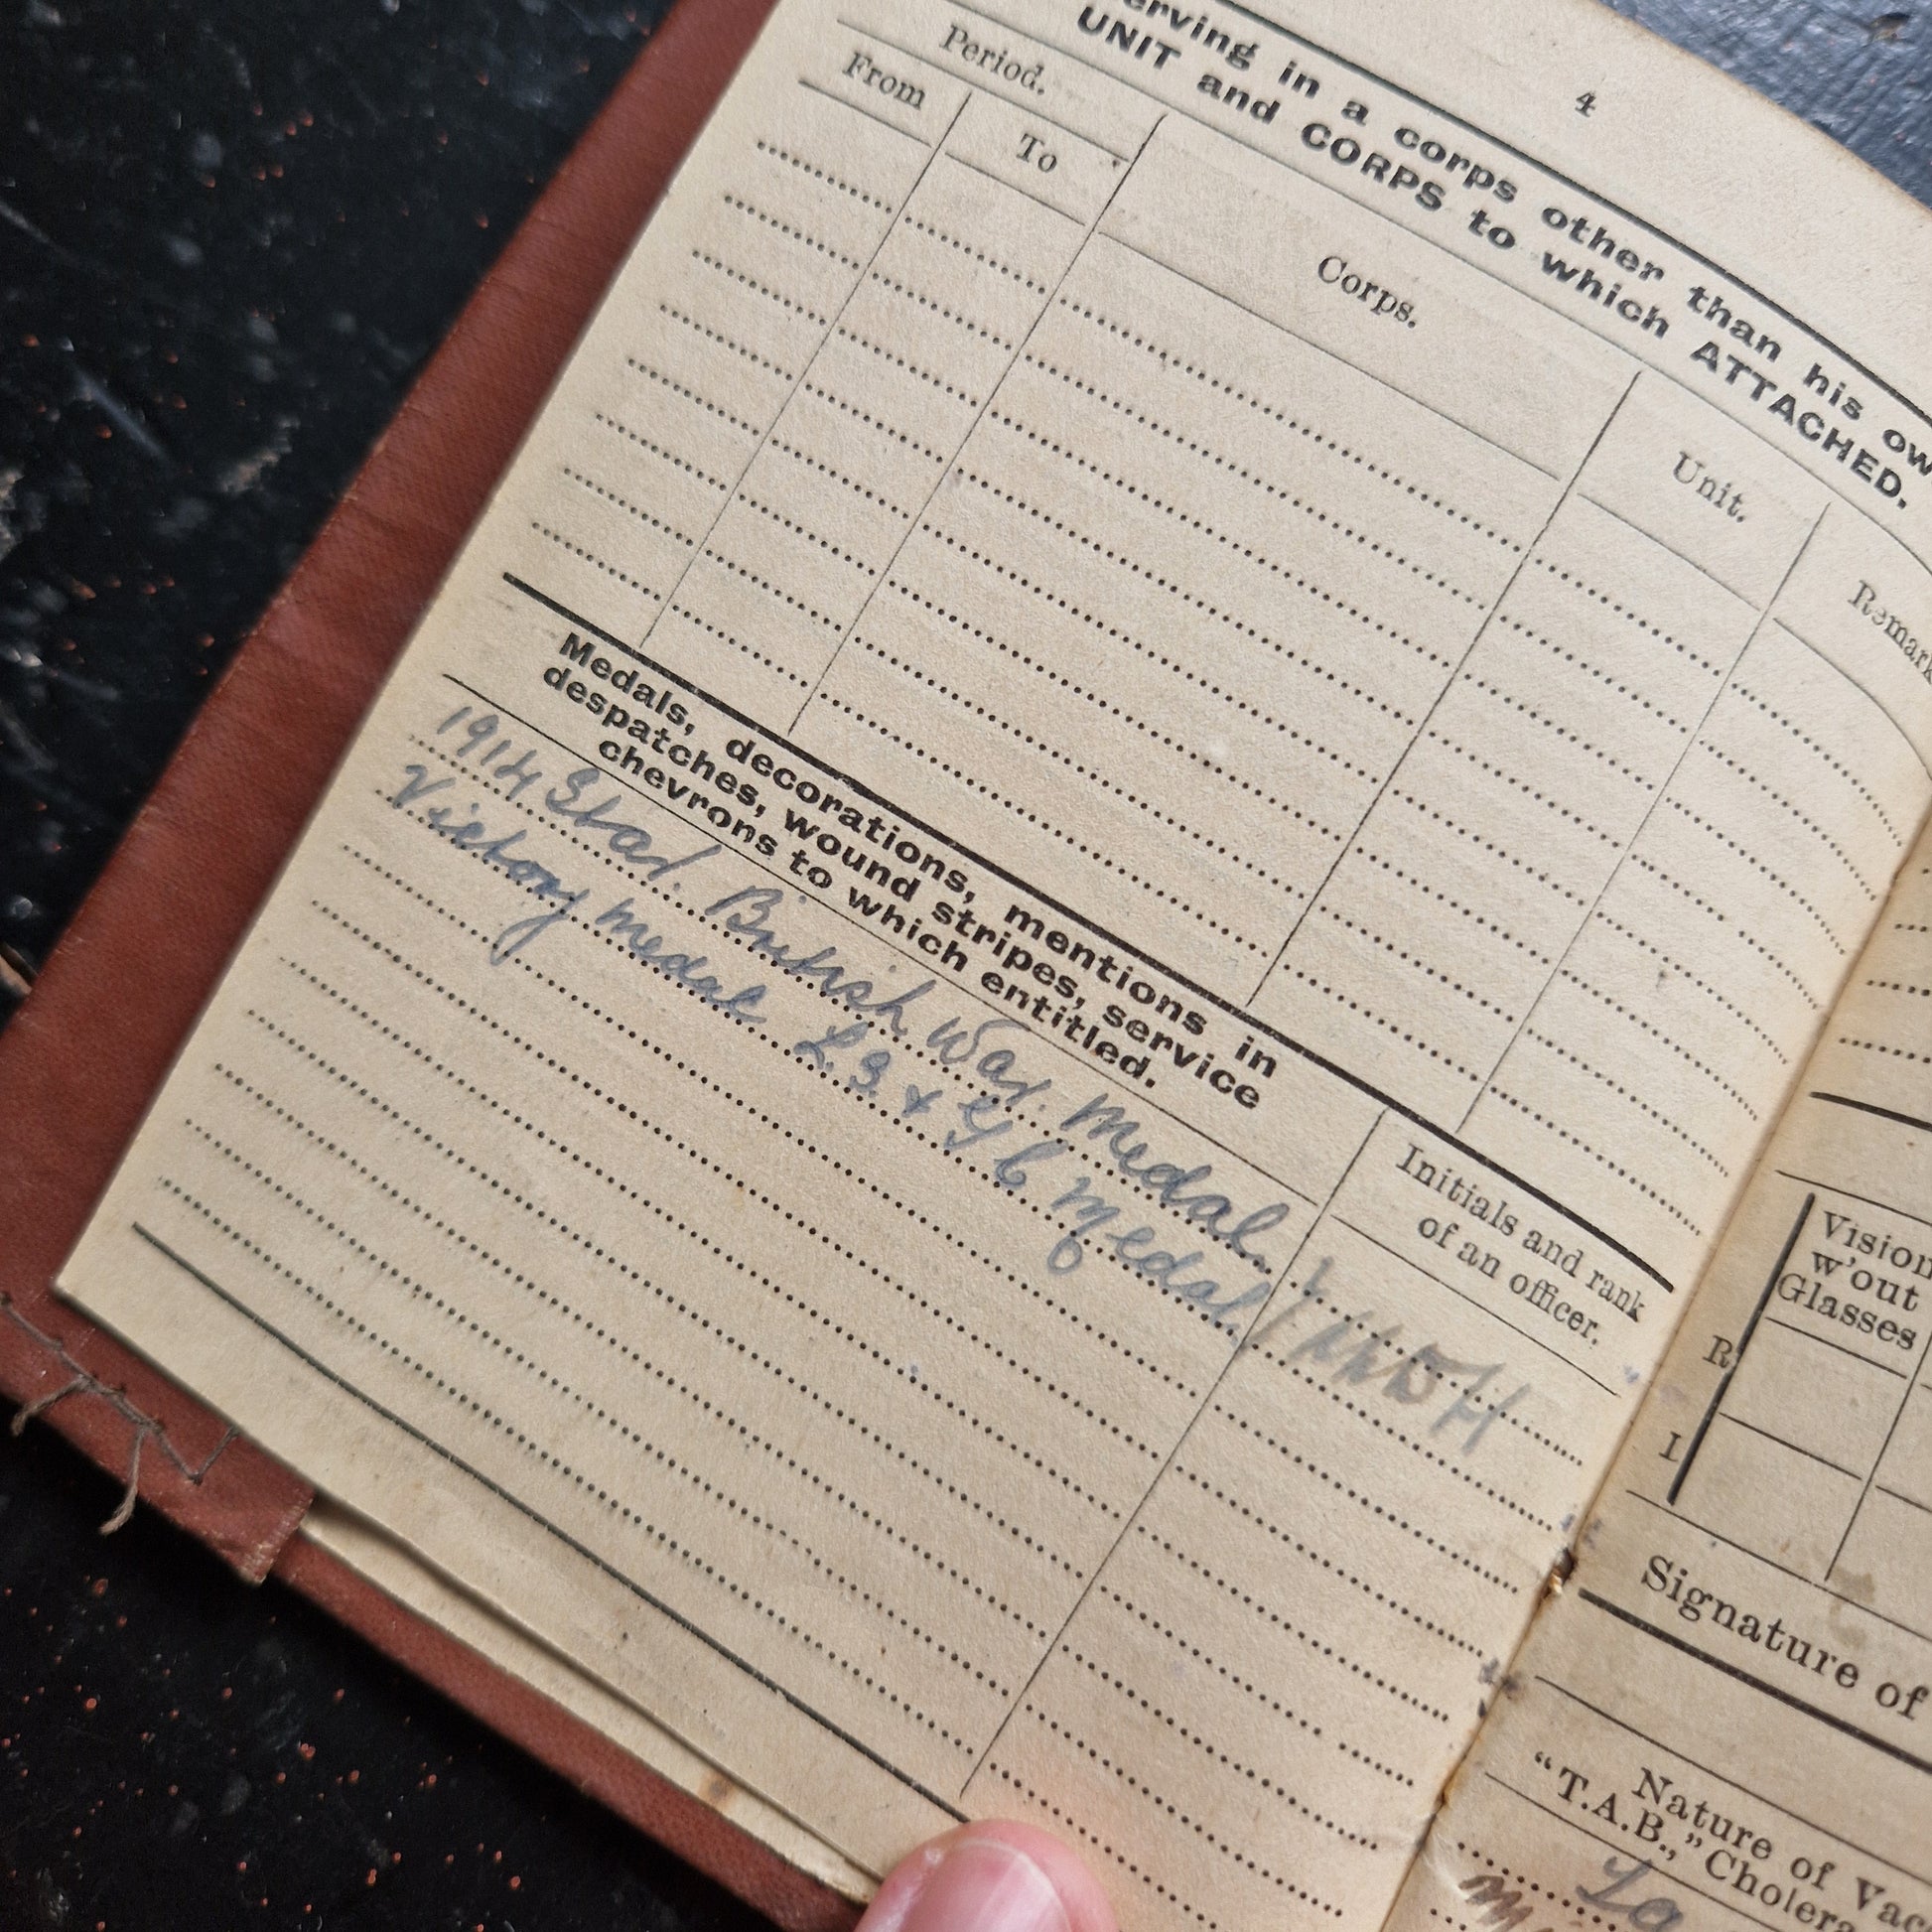 4
erving in a corps other than his ow
UNIT and CORPS to which ATTACHED.
Period.
From To Corps. Unit. Remark
Medals, decorations, mentions in
despatches, wound stripes, service
chevrons to which entitled.
Initials and rank
of an officer.
1914 Star. British War. Medal.
Victory medal L.S. & G C Medal.
Vision
w'out
Glasses
R
L
Signature of
Nature of Vac
"T.A.B.," Cholera